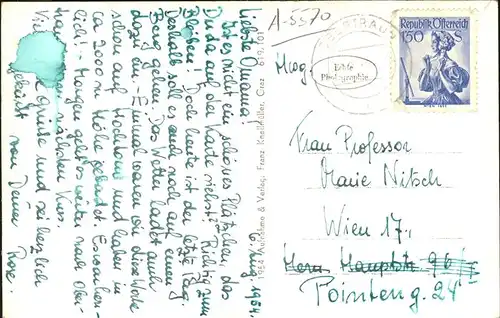 A-5570
6. Aug. 1954.
Liebste Omama!
Ist es nicht ein schönes Plätzchen, das
Du da auf der Karte siehst? Richtig zum
Bleiben! Doch heute ist der letzte Tag.
Deshalb soll es auch noch auf einen
Berg gehen. Das Wetter lacht auch
dazu ein. Einmal waren wir diese Woche
schon auf Hochtour und haben in
ca 2000 m Höhe gebadet.
lich! - Morgen geht es weiter nach
nächsten Kurs.
Viele Grüße und sei herzlich
geküsst von Deiner
1954 Aufnahme & Verlag, Franz Knollmüller, Graz
Echte
Photographie
Republik Österreich
1.50 S
WIEN 1850
Frau Professor
Marie Nitsch
Wien 17.,
Hern. Hauptstr. 96
Pointeng. 24